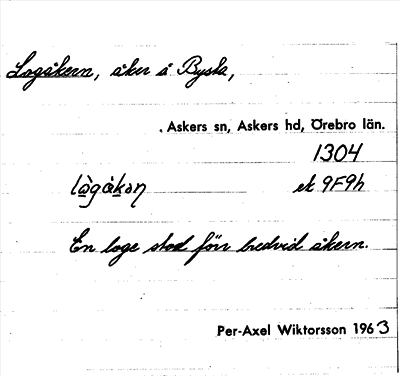 Logåkern, åker å Bysta,
Askers sn, Askers hd, Örebro län.
1304
lògåkəṇ ek 9F9h
En loge stod förr bredvid åkern.
Per-Axel Wiktorsson 1963